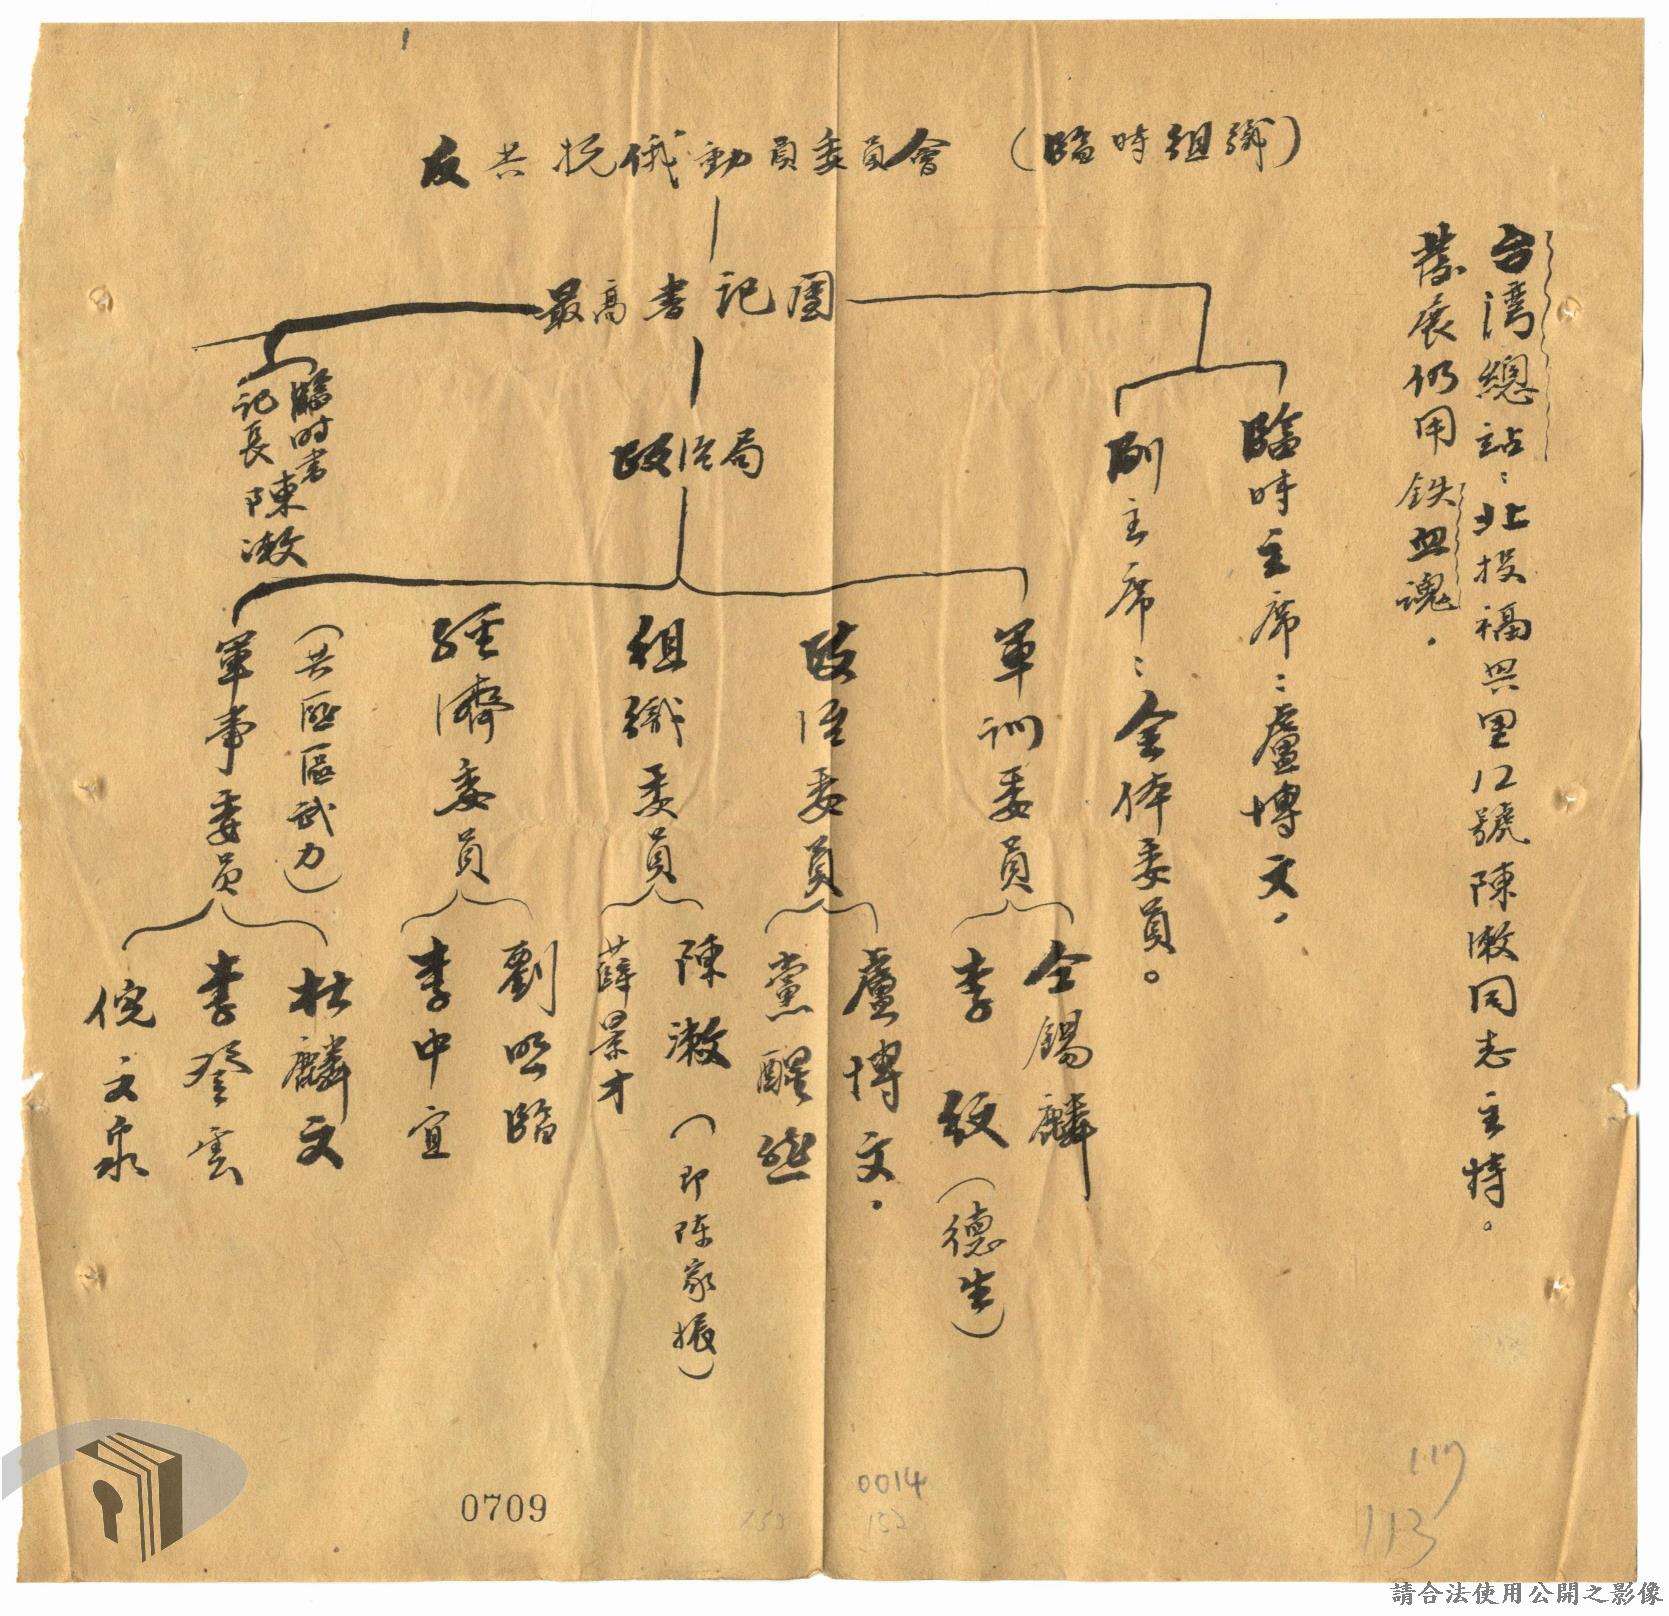 反共抗俄動員委員會（臨時組織）
台灣總站：北投福興里12號陳漱同志主持。
發展仍用鉄血魂．
最高書記團
臨時主席：盧博文．
副主席：全体委員。
政治局
臨時書
記長陳漱
軍訓委員
仝錫麟
李紋（德生）
政治委員
盧博文．
黨醒
組織委員
陳漱（即陈家振）
薛景才
經濟委員
劉照臨
李中宜
（共匪區武力）
軍事委員
杜麟文
李登雲
倪文泉
0709
0014
153
152
117
113
請合法使用公開之影像